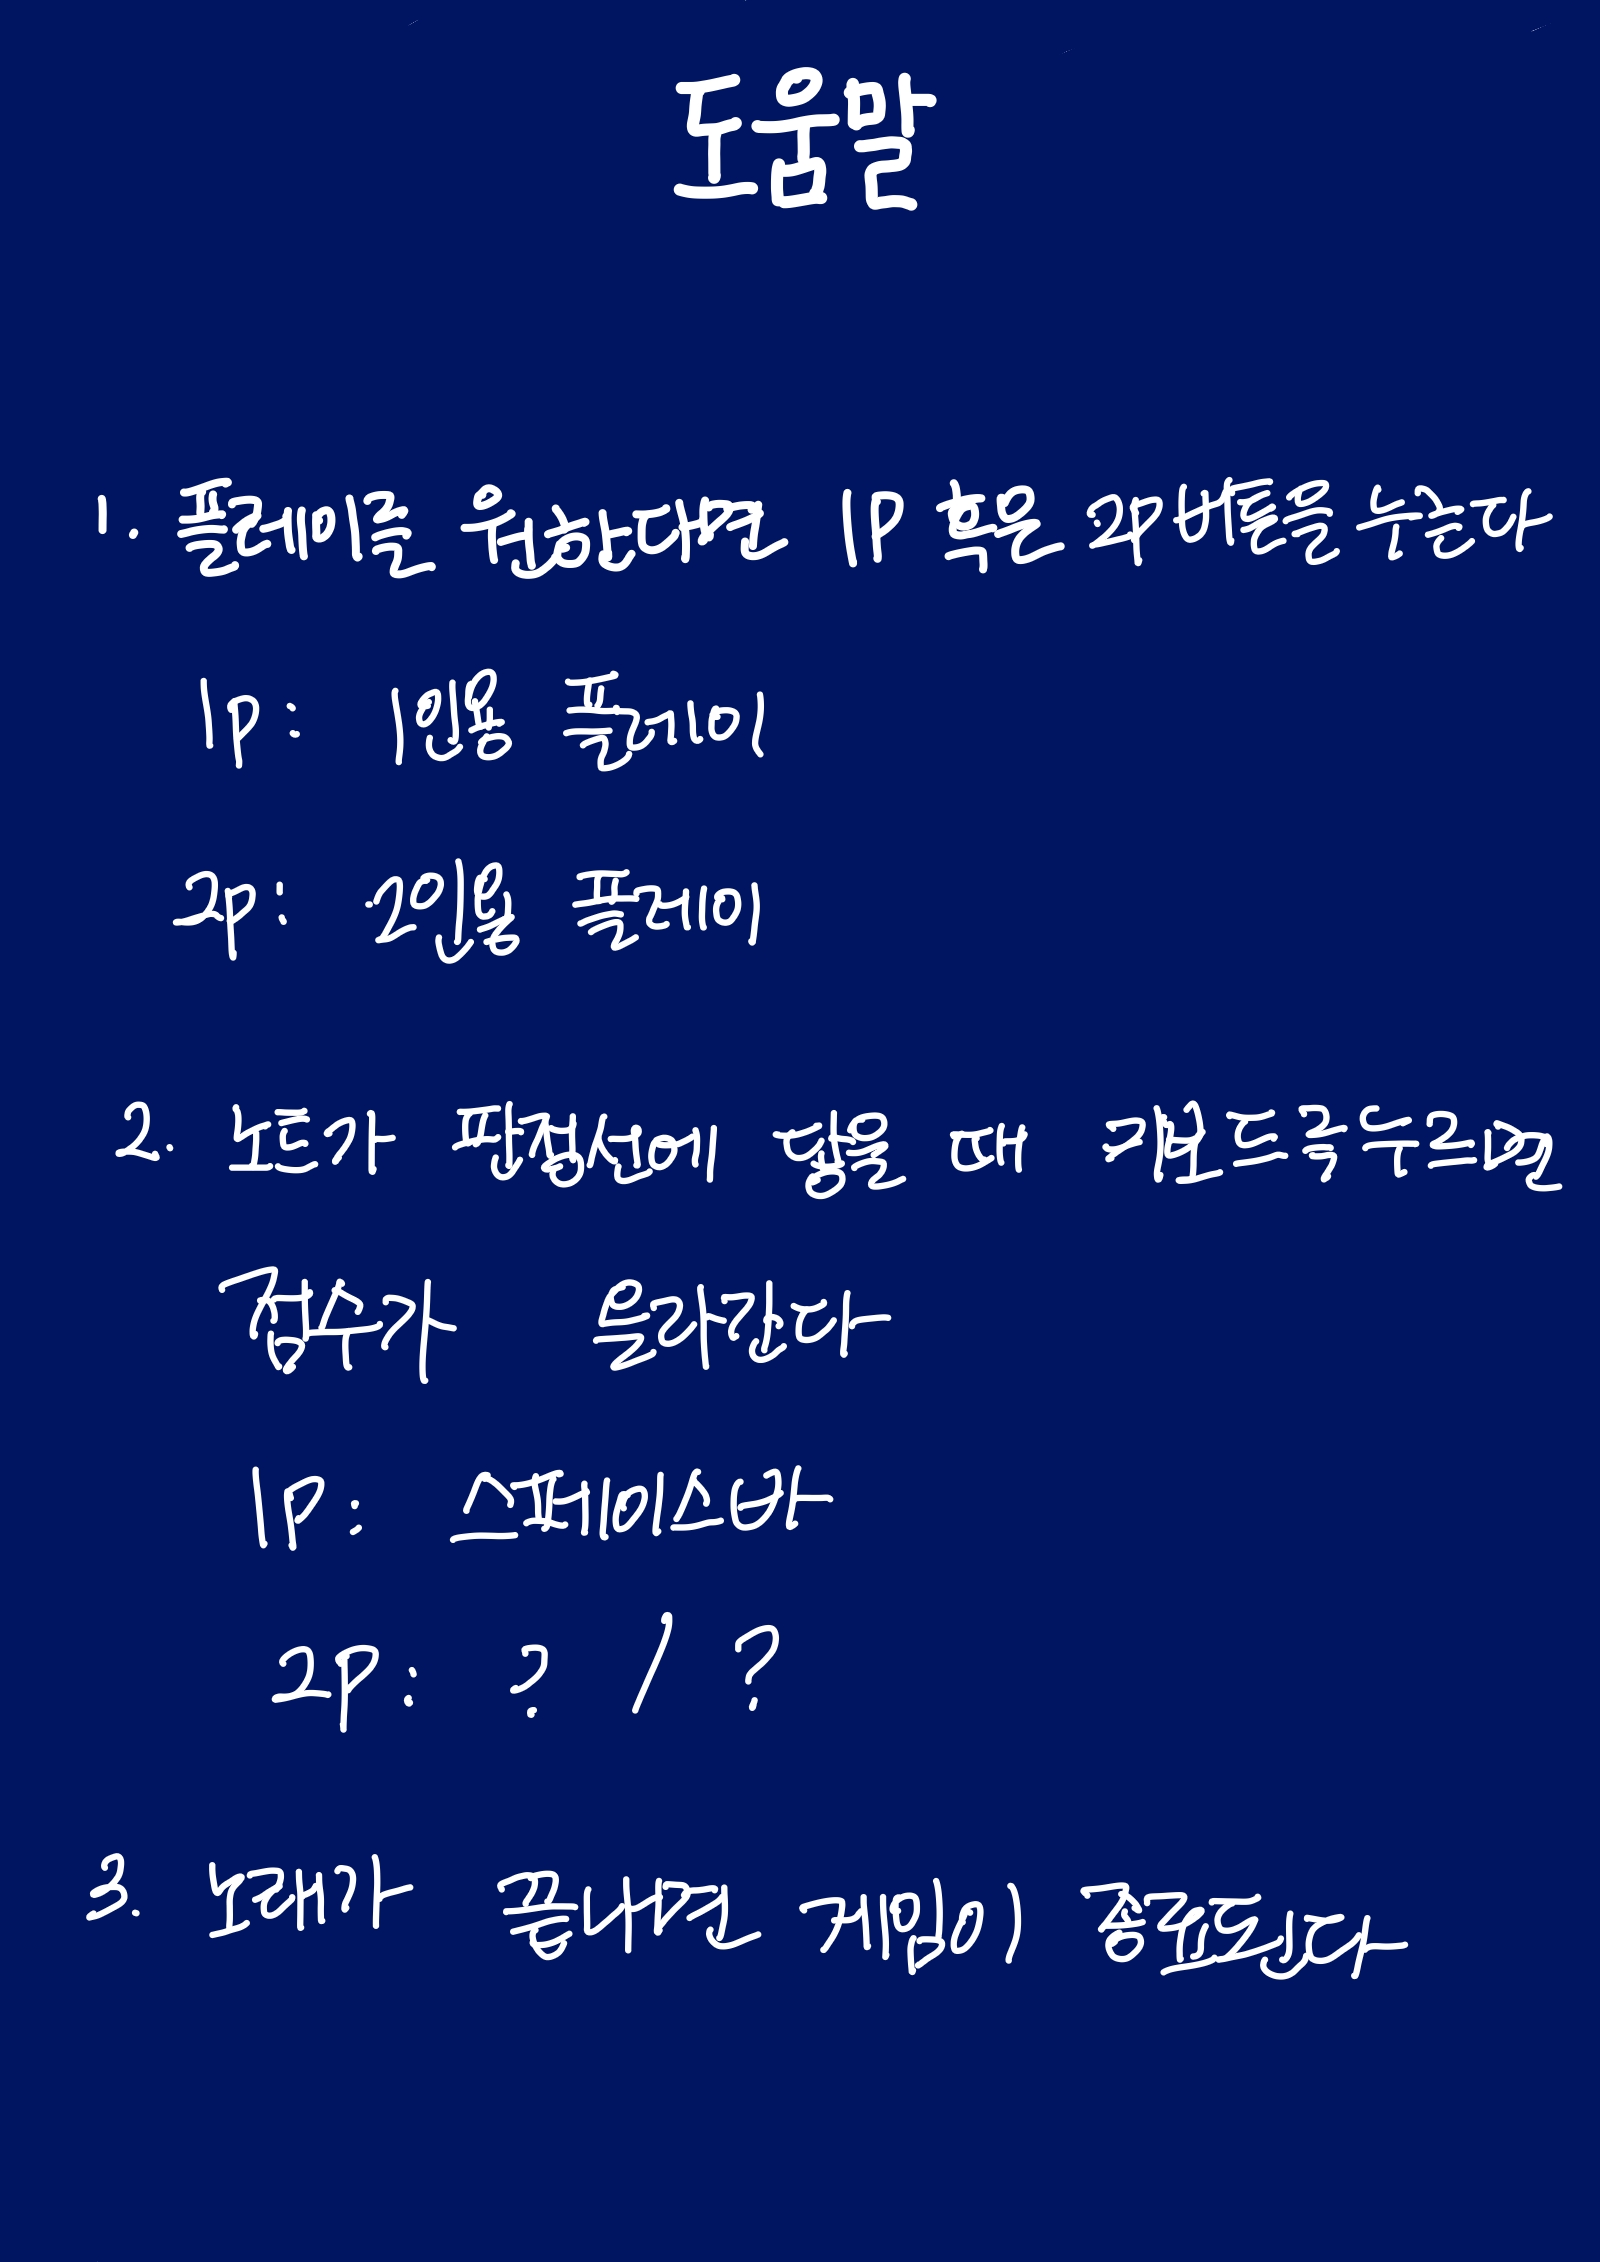 도움말
1. 플레이를 원한다면 1P 혹은 2P버튼을 누른다
1P: 1인용 플레이
2P: 2인용 플레이
2. 노트가 판정선에 닿을 때 키보드를누르면
점수가 올라간다
1P: 스페이스바
2P: ? / ?
3. 노래가 끝나면 게임이 종료된다